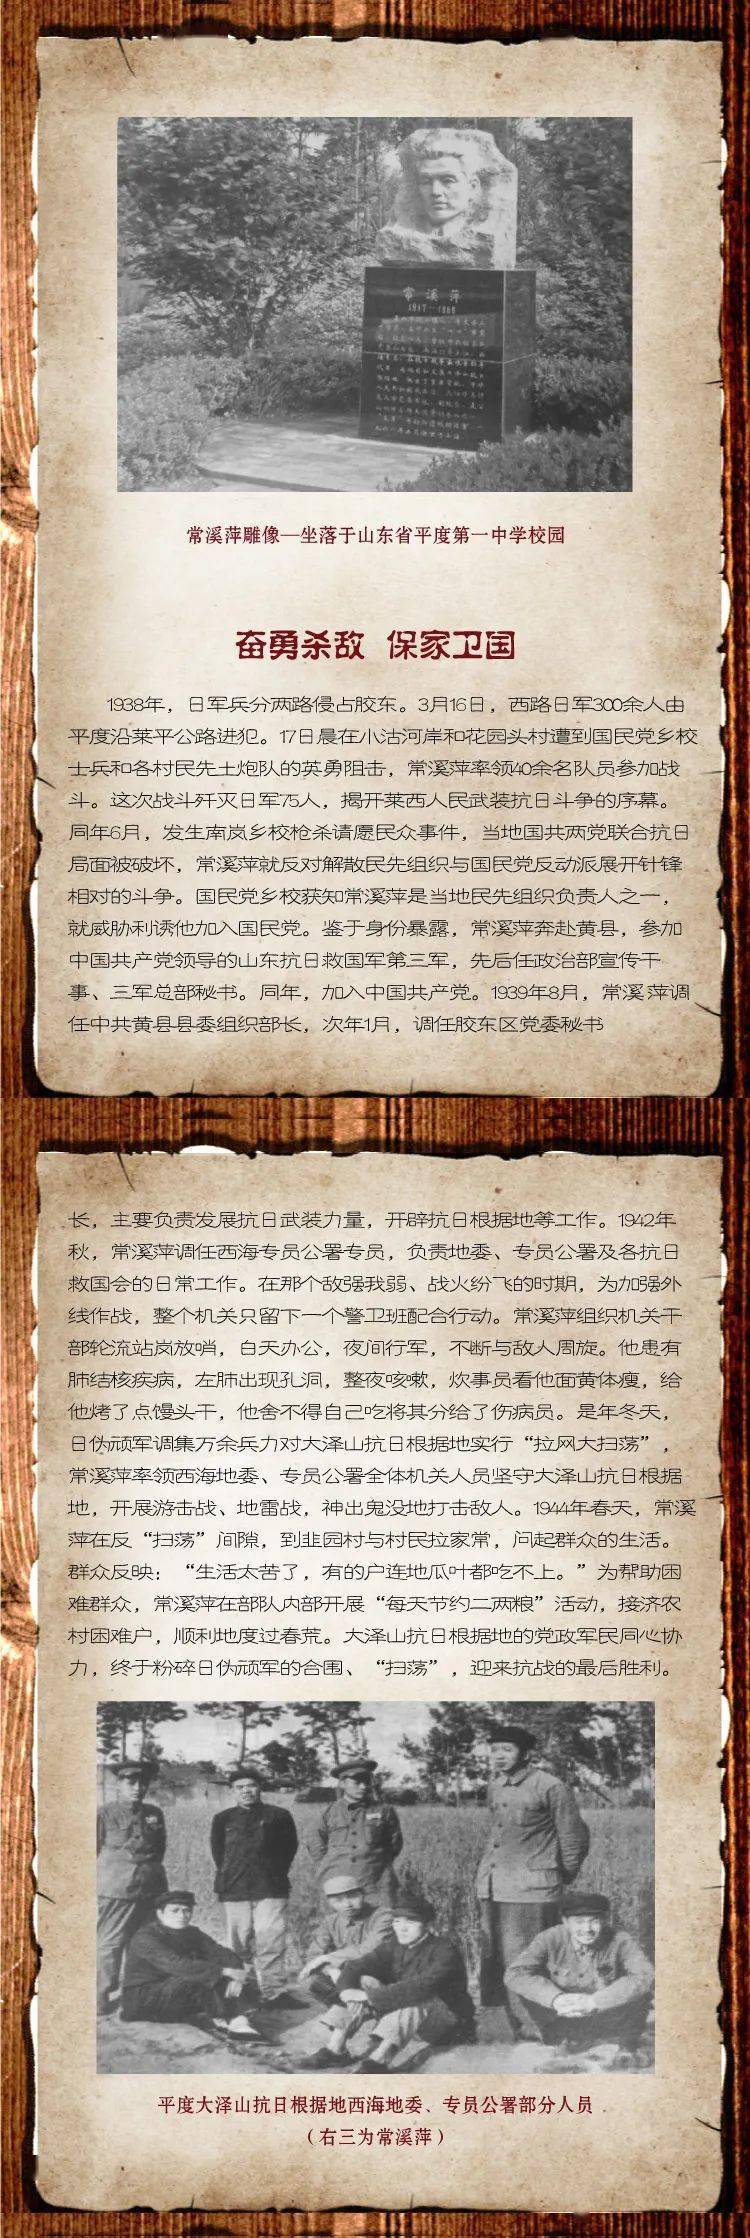 常溪萍
1917—1968
常溪萍雕像—坐落于山东省平度第一中学校园
奋勇杀敌 保家卫国
1938年，日军兵分两路侵占胶东。3月16日，西路日军300余人由
平度沿莱平公路进犯。17日晨在小沽河岸和花园头村遭到国民党乡校
士兵和各村民先土炮队的英勇阻击，常溪萍率领40余名队员参加战
斗。这次战斗歼灭日军75人，揭开莱西人民武装抗日斗争的序幕。
同年6月，发生南岚乡校枪杀请愿民众事件，当地国共两党联合抗日
局面被破坏，常溪萍就反对解散民先组织与国民党反动派展开针锋
相对的斗争。国民党乡校获知常溪萍是当地民先组织负责人之一，
就威胁利诱他加入国民党。鉴于身份暴露，常溪萍奔赴黄县，参加
中国共产党领导的山东抗日救国军第三军，先后任政治部宣传干
事、三军总部秘书。同年，加入中国共产党。1939年8月，常溪萍调
任中共黄县县委组织部长，次年1月，调任胶东区党委秘书
长，主要负责发展抗日武装力量，开辟抗日根据地等工作。1942年
秋，常溪萍调任西海专员公署专员，负责地委、专员公署及各抗日
救国会的日常工作。在那个敌强我弱、战火纷飞的时期，为加强外
线作战，整个机关只留下一个警卫班配合行动。常溪萍组织机关干
部轮流站岗放哨，白天办公，夜间行军，不断与敌人周旋。他患有
肺结核疾病，左肺出现孔洞，整夜咳嗽，炊事员看他面黄体瘦，给
他烤了点馒头干，他舍不得自己吃将其分给了伤病员。是年冬天，
日伪顽军调集万余兵力对大泽山抗日根据地实行“拉网大扫荡”，
常溪萍率领西海地委、专员公署全体机关人员坚守大泽山抗日根据
地，开展游击战、地雷战，神出鬼没地打击敌人。1944年春天，常溪
萍在反“扫荡”间隙，到韭园村与村民拉家常，问起群众的生活。
群众反映：“生活太苦了，有的户连地瓜叶都吃不上。”为帮助困
难群众，常溪萍在部队内部开展“每天节约二两粮”活动，接济农
村困难户，顺利地度过春荒。大泽山抗日根据地的党政军民同心协
力，终于粉碎日伪顽军的合围、“扫荡”，迎来抗战的最后胜利。
平度大泽山抗日根据地西海地委、专员公署部分人员
（右三为常溪萍）